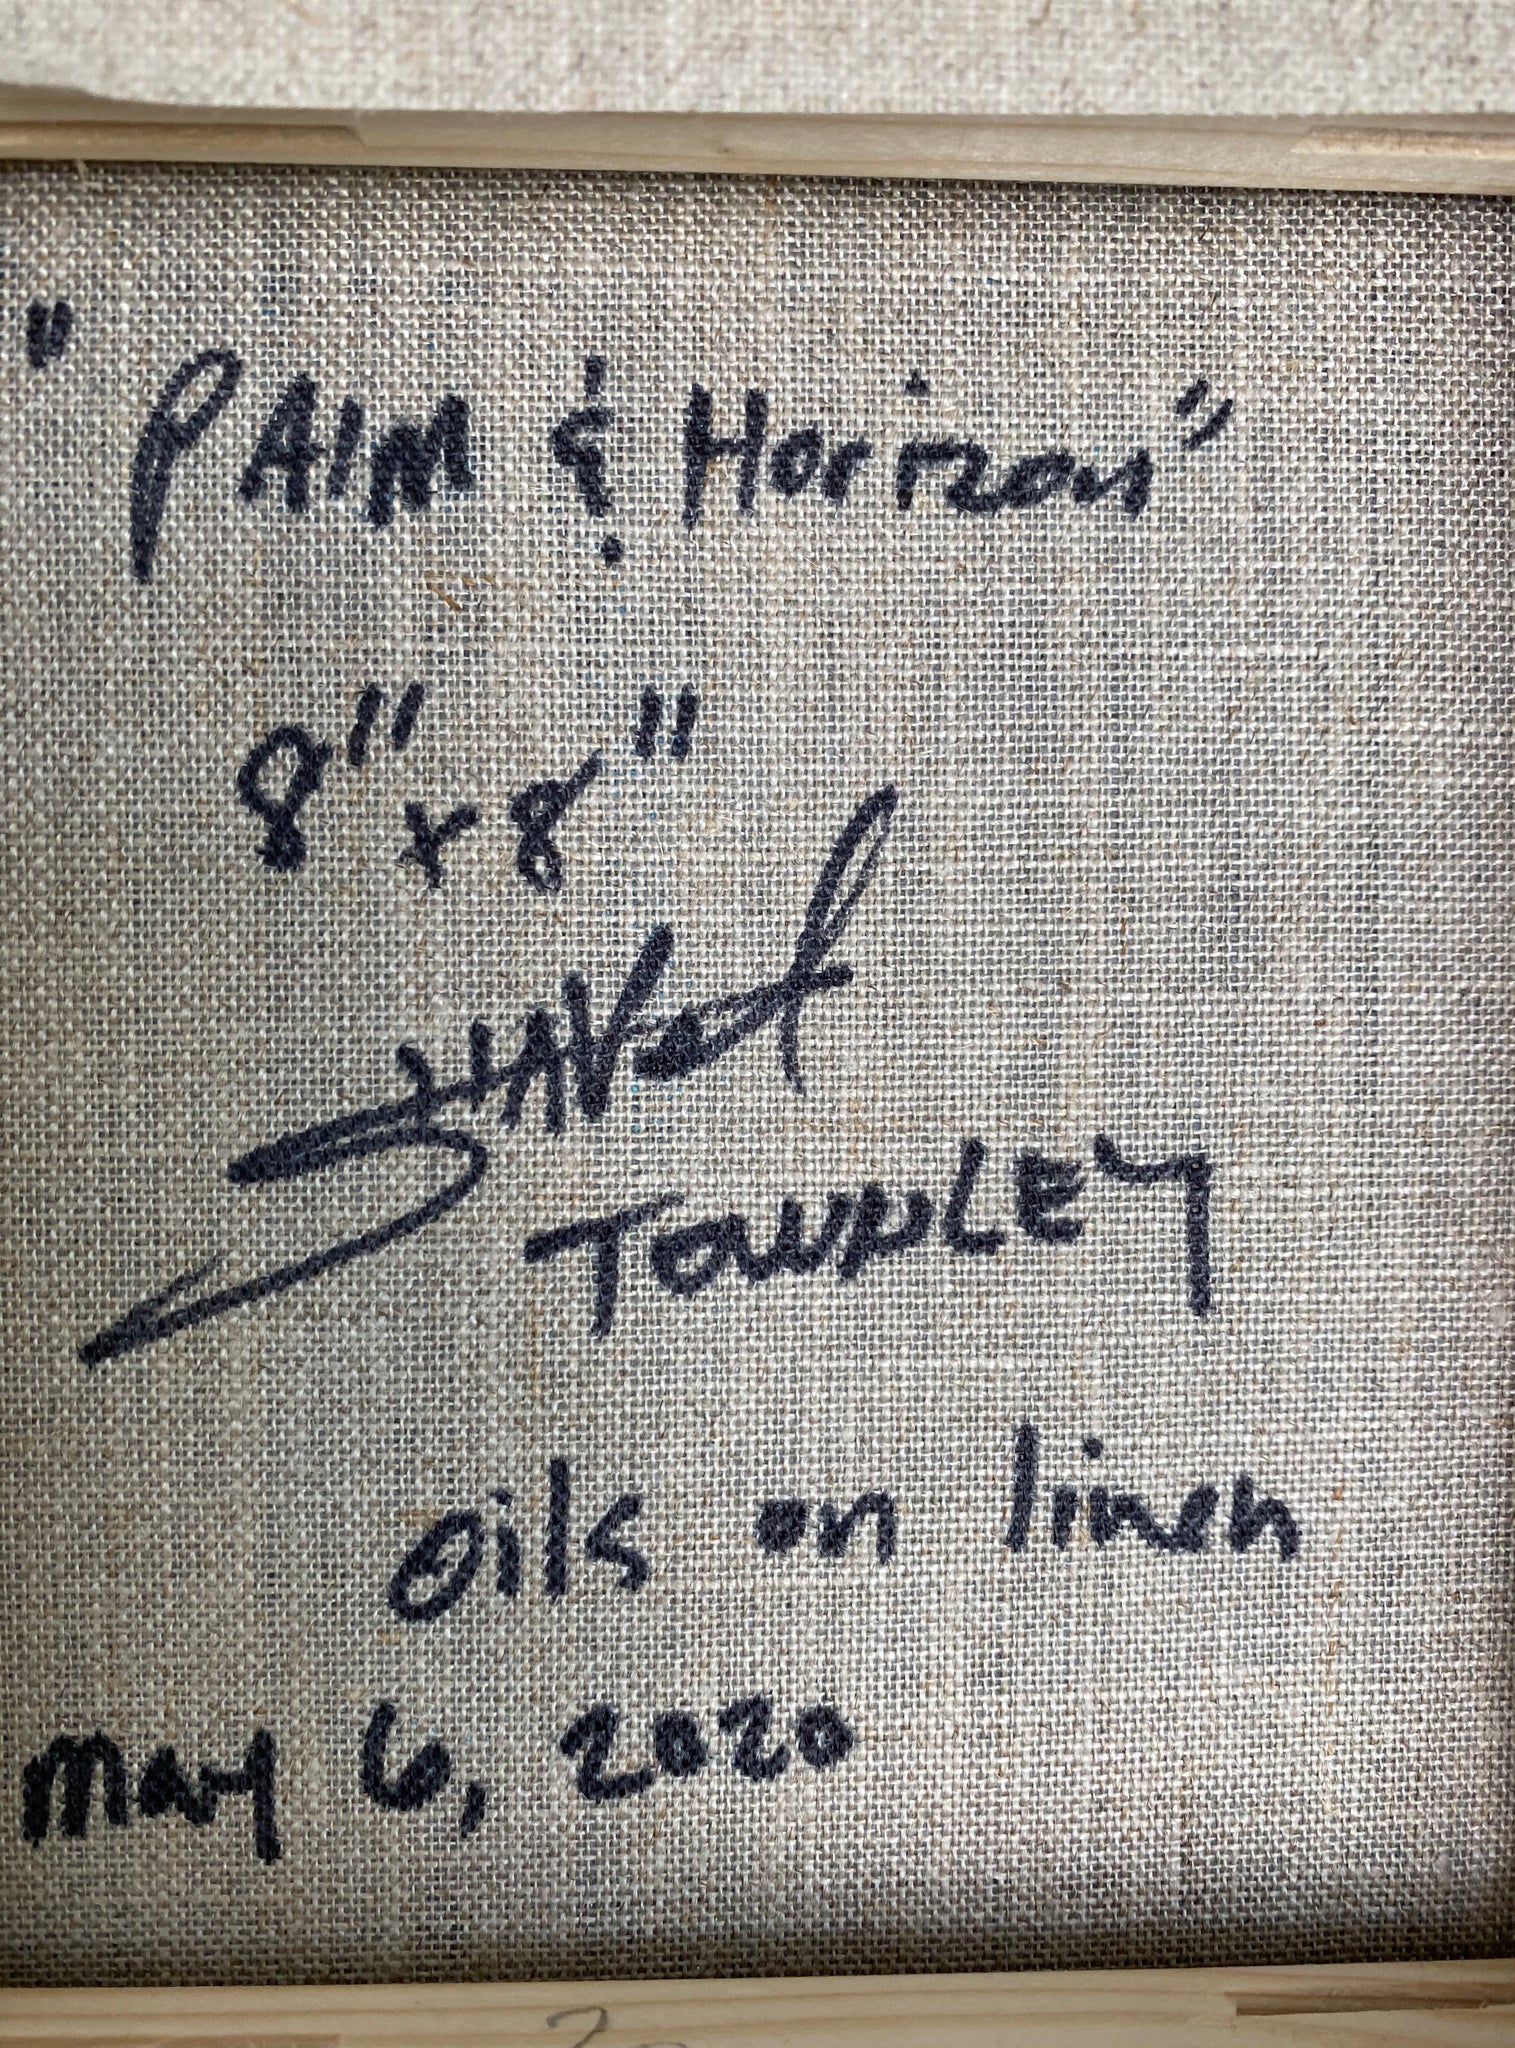 "PAlM & Horizon"
8" x 8"
TOWNLEY
oils on linen
May 6, 2020